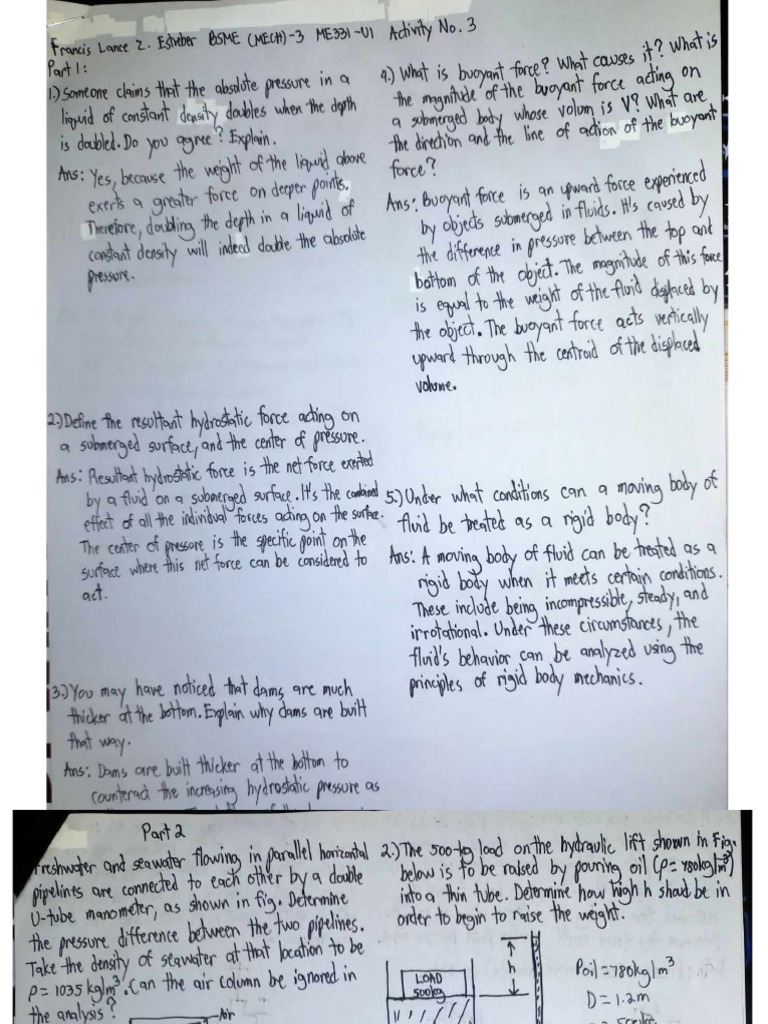 Francis Lance Z. Estreber BSME (MECH)-3 ME331-U1 Activity No. 3
Part 1:
1.) Someone claims that the absolute pressure in a
liquid of constant density doubles when the depth
is doubled. Do you agree? Explain.
Ans: Yes, because the weight of the liquid above
exerts a greater force on deeper points.
Therefore, doubling the depth in a liquid of
constant density will indeed double the absolute
pressure.
2.) Define the resultant hydrostatic force acting on
a submerged surface, and the center of pressure.
Ans: Resultant hydrostatic force is the net force exerted
by a fluid on a submerged surface. It's the combined
effect of all the individual forces acting on the surface.
The center of pressure is the specific point on the
surface where this net force can be considered to
act.
3.) You may have noticed that dams are much
thicker at the bottom. Explain why dams are built
that way.
Ans: Dams are built thicker at the bottom to
counteract the increasing hydrostatic pressure as
4.) What is buoyant force? What causes it? What is
the magnitude of the buoyant force acting on
a submerged body whose volum is V? What are
the direction and the line of action of the buoyant
force?
Ans: Buoyant force is an upward force experienced
by objects submerged in fluids. It's caused by
the difference in pressure between the top and
bottom of the object. The magnitude of this force
is equal to the weight of the fluid displaced by
the object. The buoyant force acts vertically
upward through the centroid of the displaced
volume.
5.) Under what conditions can a moving body of
fluid be treated as a rigid body?
Ans: A moving body of fluid can be treated as a
rigid body when it meets certain conditions.
These include being incompressible, steady, and
irrotational. Under these circumstances, the
fluid's behavior can be analyzed using the
principles of rigid body mechanics.
Part 2
Freshwater and seawater flowing in parallel horizontal
pipelines are connected to each other by a double
U-tube manometer, as shown in fig. Determine
the pressure difference between the two pipelines.
Take the density of seawater at that location to be
ρ = 1035 kg/m³. Can the air column be ignored in
the analysis?
Air
2.) The 500-kg load on the hydraulic lift shown in Fig.
below is to be raised by pouring oil (ρ = 780kg/m³)
into a thin tube. Determine how high h shoud be in
order to begin to raise the weight.
LOAD
500kg
h
ρoil = 780kg/m³
D = 1.2m